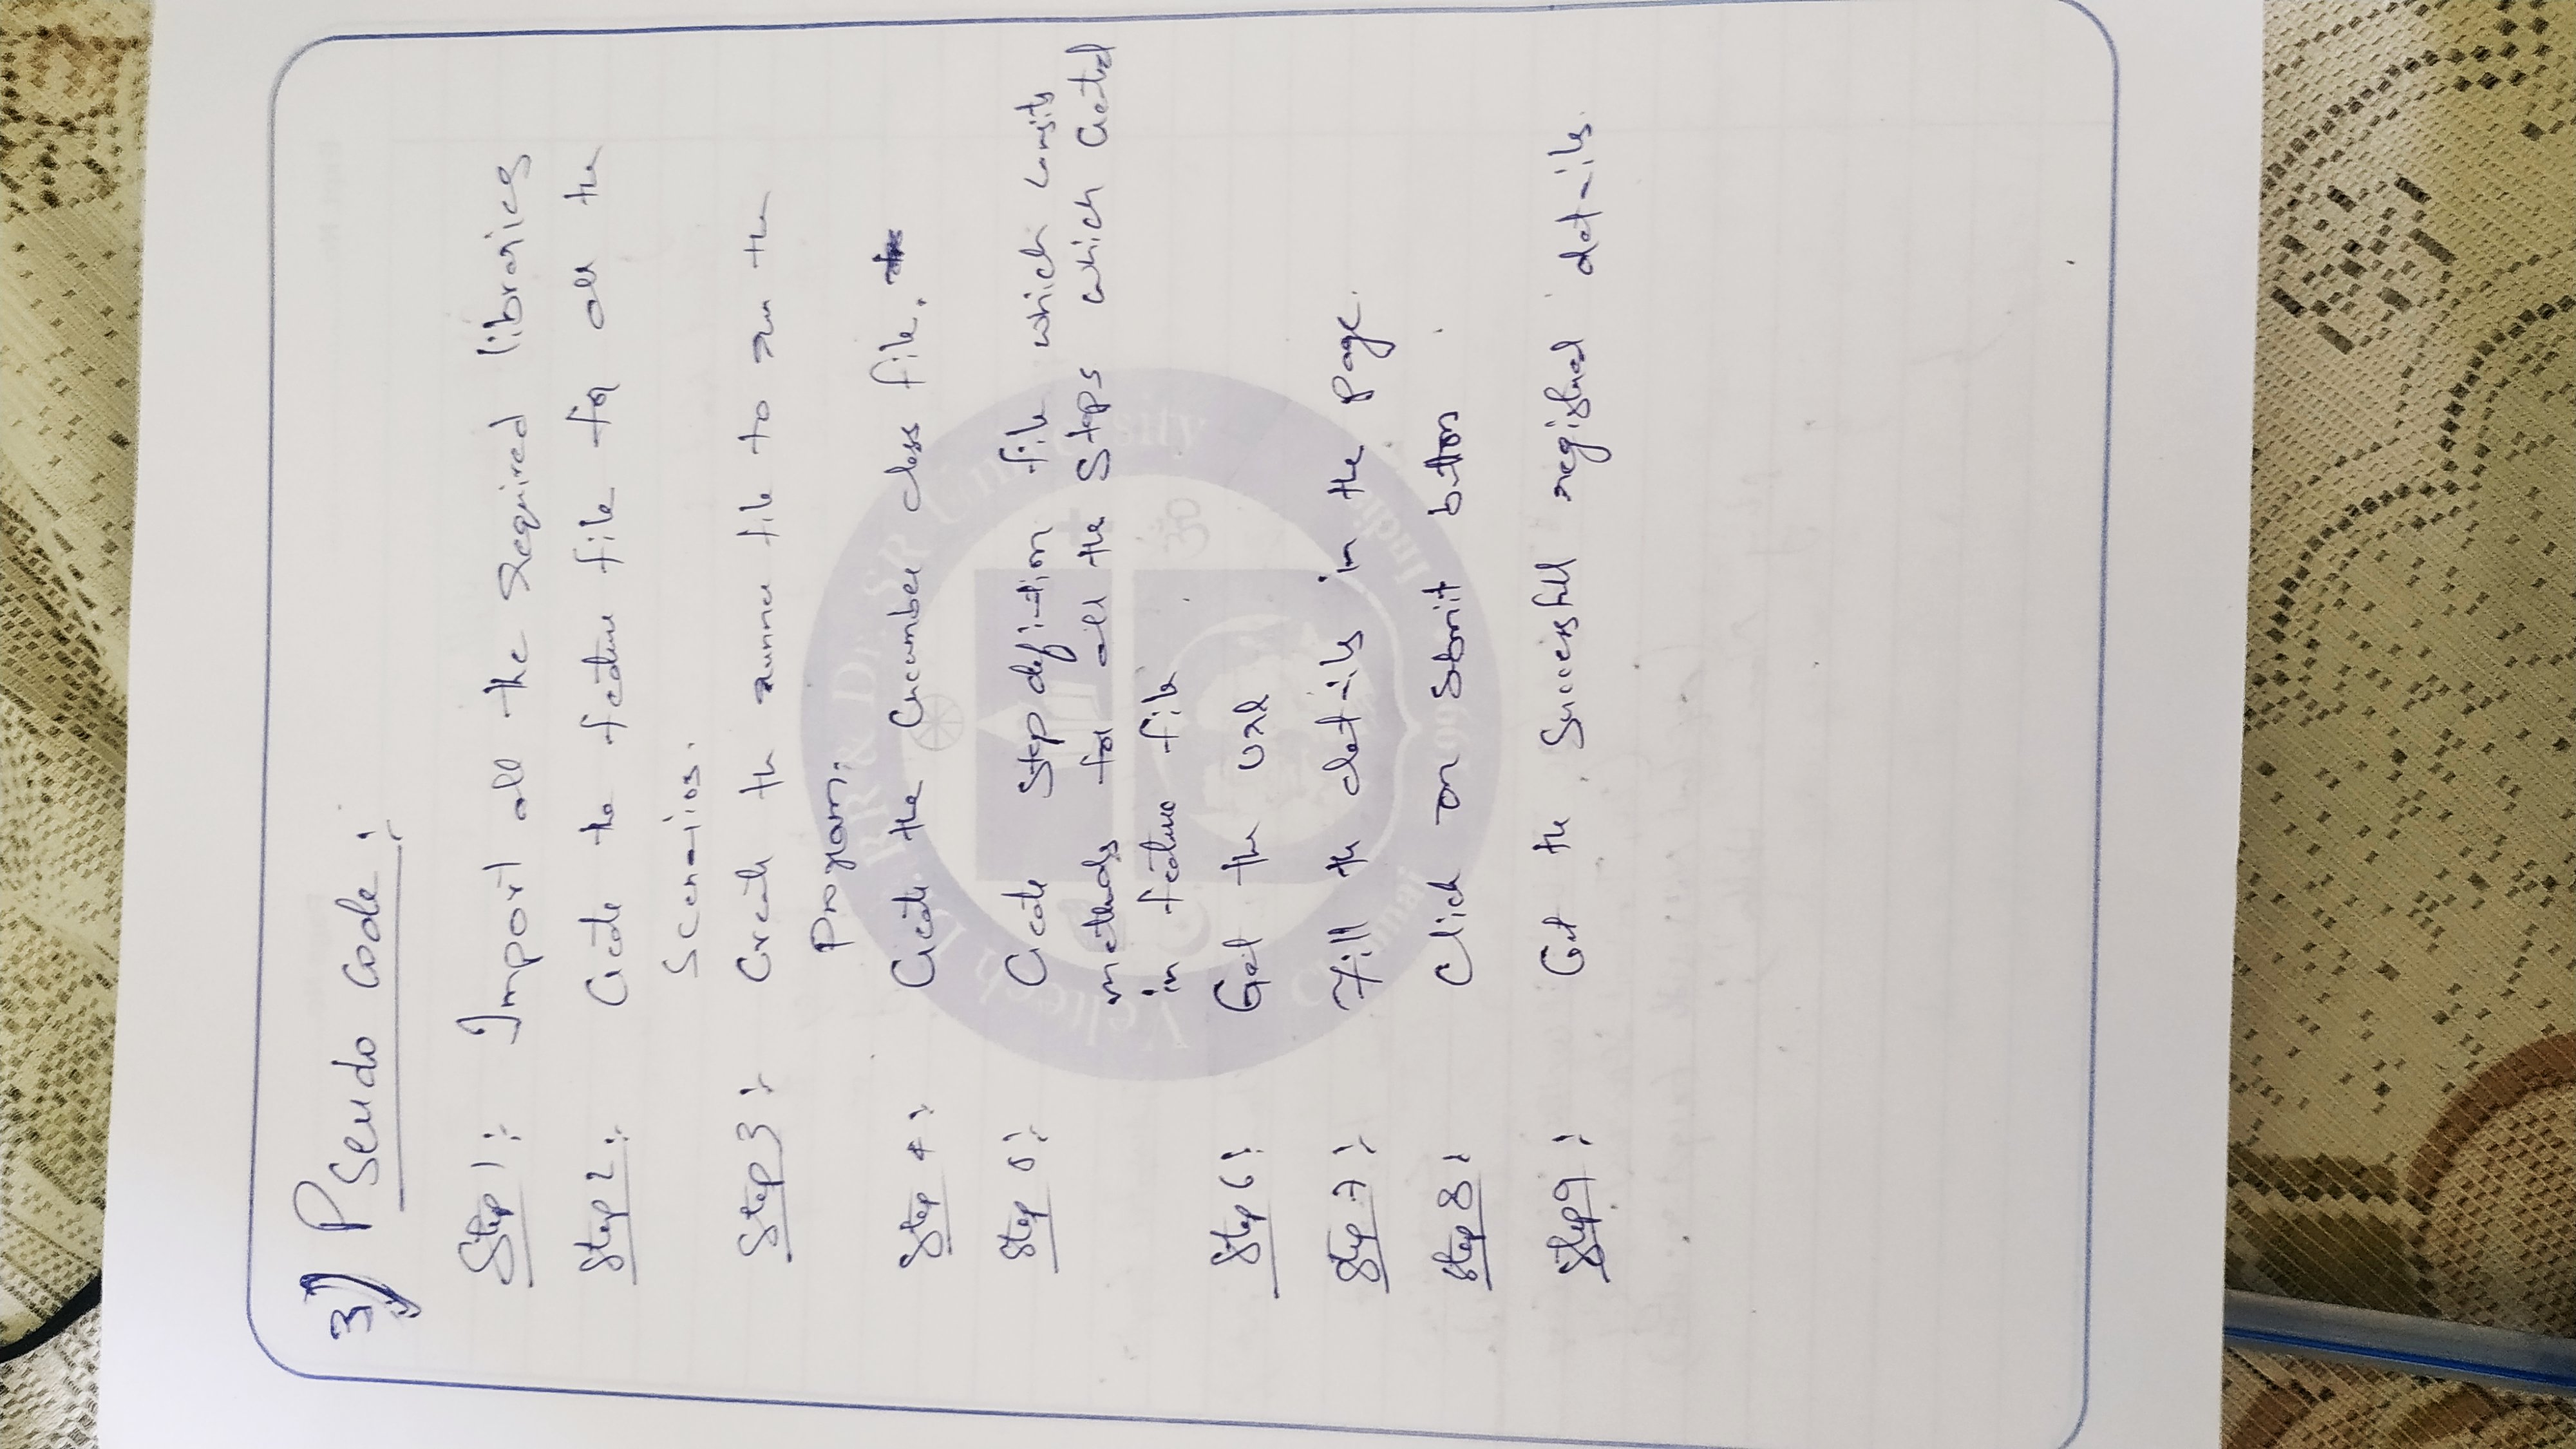 3) Pseudo code :
Step 1 : Import all the required libraries
Step 2 : Create the feature file for all the
Scenarios.
Step 3 : Create the runner file to run the
Program.
Step 4 : Create the Cucumber class file.
Step 5 : Create Step definition file which consits
methods for all the Steps which Created
in feature file
Step 6 : Get the url
Step 7 : Fill the details in the page.
Step 8 : Click on Submit button
Step 9 : Get the Successfull registered details.
Veltech Dr. RR & Dr. SR University
Chennai India